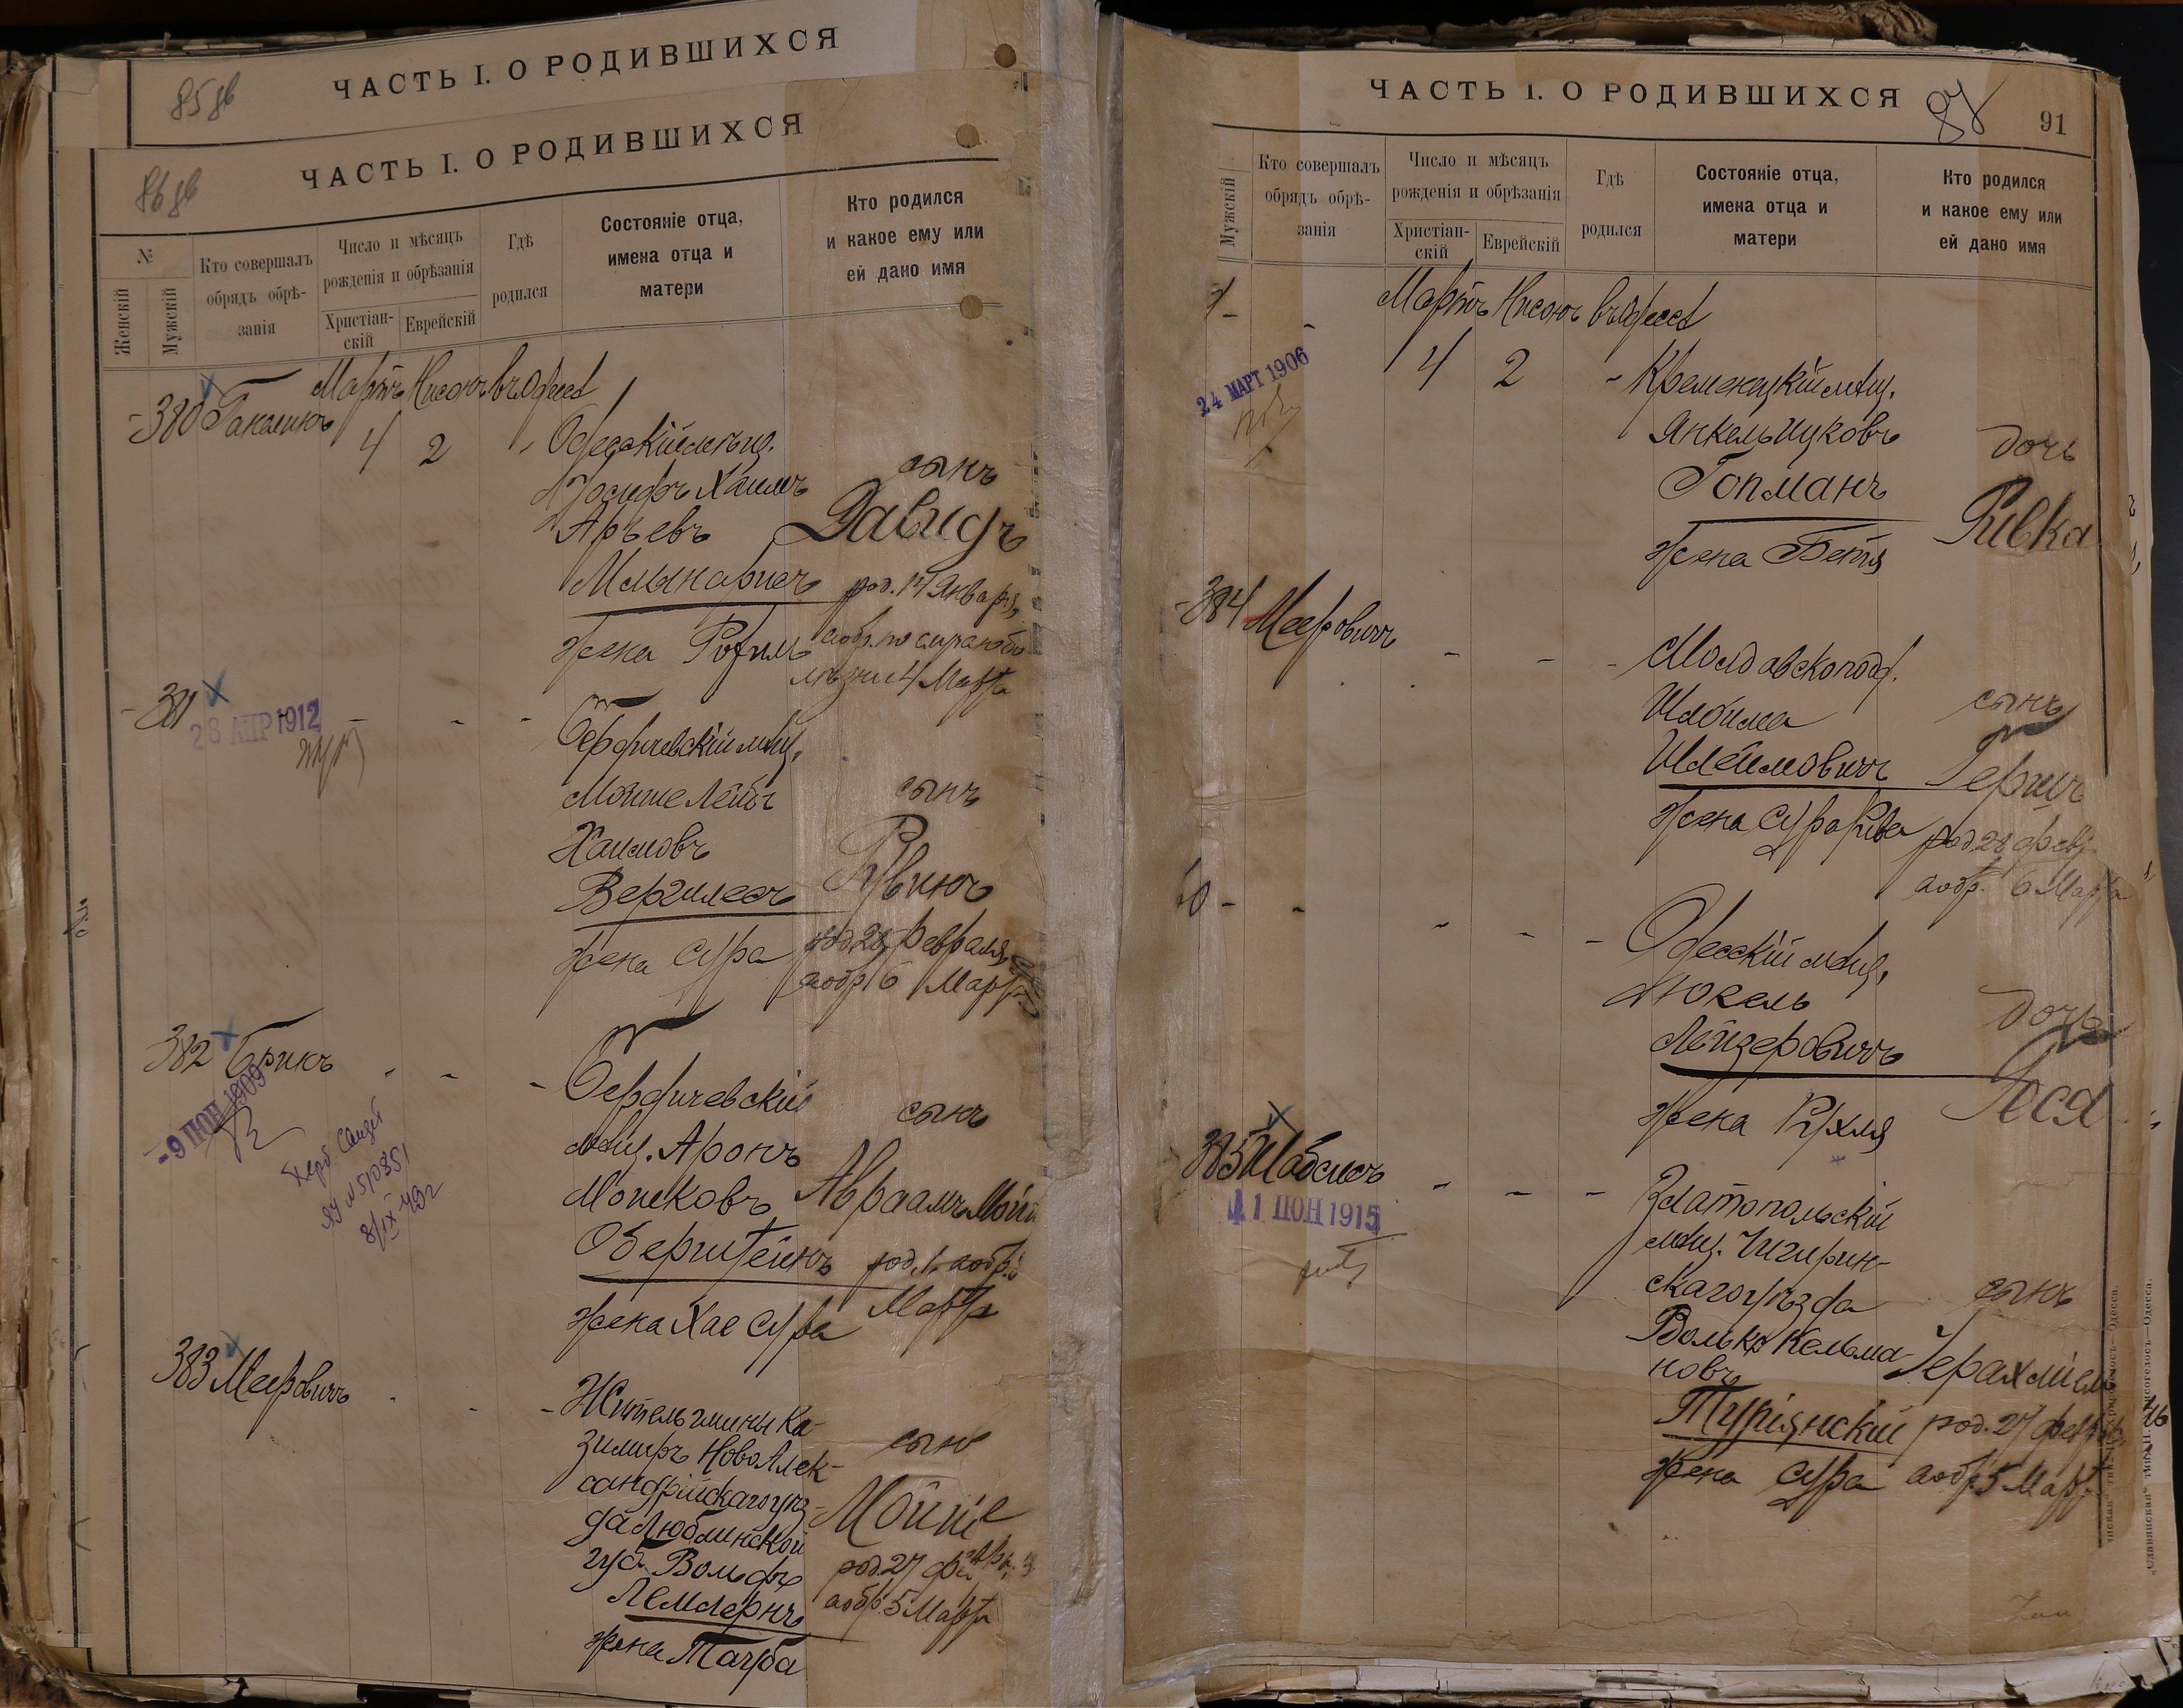 ЧАСТЬ I. О РОДИВШИХСЯ
85 об
ЧАСТЬ I. О РОДИВШИХСЯ
86 об
№
Женскій
Мужскій
Кто совершалъ
обрядъ обрѣ-
занія
Число и мѣсяцъ
рожденія и обрѣзанія
Христіан-
скій
Еврейскій
Гдѣ
родился
Состояніе отца,
имена отца и
матери
Кто родился
и какое ему или
ей дано имя
Мартъ Нисонъ въ Одессѣ
380
4 2
Одесскій мѣщ.
Іосифъ Хаимъ
Арьевъ
Млынарисъ
жена Рофил
сынъ
Давидъ
род. 17 Января,
аобр. по случаю бо
лѣзни 4 Марта
381
28 АПР 1912
Бердичевскій мѣщ.
Мойше Лейбъ
Хаимовъ
Вергилесъ
жена Сура
сынъ
Рувинъ
род. 28 Февраля,
аобр 6 Марта
382 Брикъ
-9 ІЮН 1909
8/IX
Бердичевскій
мѣщ. Аронъ
Мошковъ
Оберштейнъ
жена Хае Сура
сынъ
Авраамъ Мойш
род. 1, аобр.
Марта
383 Мееровичъ
Житель гмины Ка-
зимиръ Ново Алек-
сандрійскаго уѣз-
да Люблинской
губ. Вольфъ
Лемлернъ
жена Тауба
сынъ
Мойше
род. 27 Февр.
аобр. 5 Марта
ЧАСТЬ I. О РОДИВШИХСЯ
87
91
Мужскій
Кто совершалъ
обрядъ обрѣ-
занія
Число и мѣсяцъ
рожденія и обрѣзанія
Христіан-
скій
Еврейскій
Гдѣ
родился
Состояніе отца,
имена отца и
матери
Кто родился
и какое ему или
ей дано имя
Мартъ Нисонъ въ Одессѣ
24 МАРТ 1906
4 2
Кременецкій мѣщ.
Янкель Ицковъ
Гопманъ
жена Бетя
дочь
Ривка
384 Мееровичъ
Молдавскоподд.
Шлойма
Шлеймовичъ
жена Сура Рива
сынъ
Гершъ
род. 28 Февр.
аобр. 6 Марта
Одесскій мѣщ.
Іосель
Лейзеровичъ
жена Рухля
дочь
Гося
385 Шабсисъ
11 ІЮН 1915
Златопольскій
мѣщ. Чигирин-
скаго уѣзда
Волько Кельма
новъ
Турянскій
жена Сура
сынъ
Іерахміель
род. 27 Февр.
аобр. 5 Март